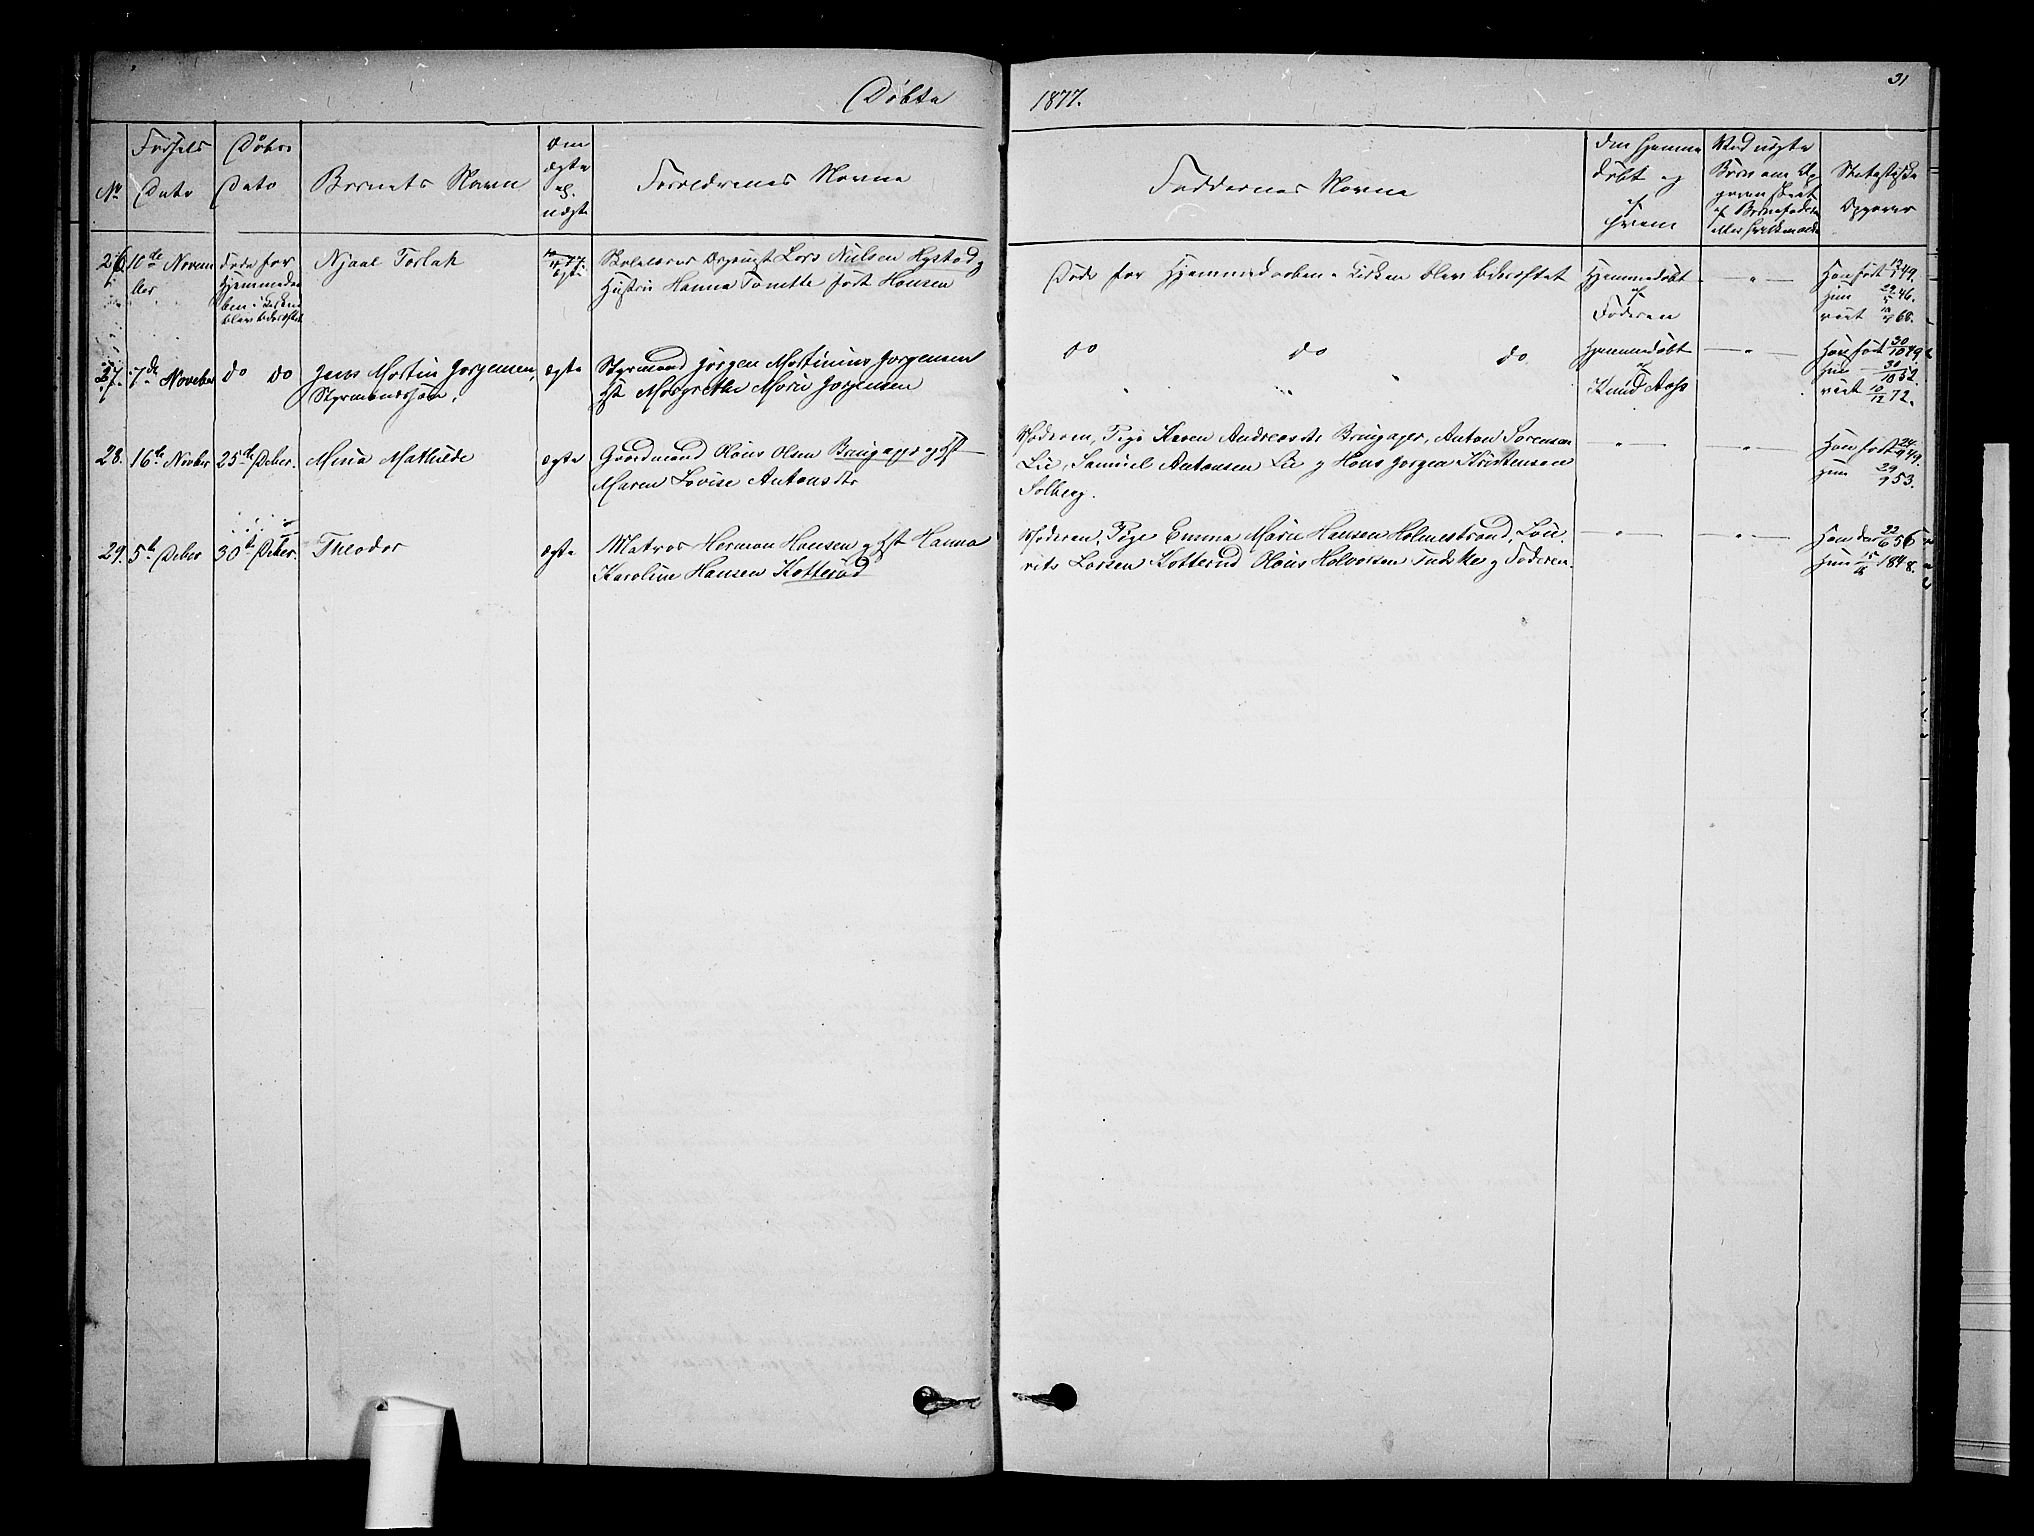 Døbte
1877.
31
No
Fødsels Dato
Døbes Dato
Barnets Navn
Om ægte el. uægte
Forældrenes Navne
Faddernes Navne
Om hjemme døbt og af hvem
Ved uægte Børn om
Statistiske Opgaver
26 10de Novem ber
Døde før Hjemmedaa ben i Kirken blev bekræftet
Njaal Torlak
ægte
Lars Nielsen Rystad og
Hustru Hanna Tomette født Hansen
Døde før Hjemmedaaben i Kirken blev bekræftet
Hjemmedøbt af Faderen
Han født 49.
Hun 46.
viet 68.
27. 7de Novbr
do do
Jens Martin Jørgensen,
Styrmandssøn.
ægte
Styrmand Jørgen Martinius Jørgensen
Hst Margrethe Marie Jørgensen
do do do
Hjemmedøbt af Knud Aas
Han født 30/10 49.
Hun 30/10 52.
viet 10/12 72.
28. 16de Novber
25de Deber.
Mina Mathilde
ægte
Gaardmand Hans Olsen Brugager og Hst
Maren Lovise Antonsdtr
Moderen, Pige Karen Andreasdtr Brugager, Anton Sørensen
Lie, Samuel Antonsen Lie og Hans Jørgen Kristensen
Solberg.
Han født 24/9 49.
Hun 29/9 53.
29. 5te Deber
30te Deber.
Theodor
ægte
Matros Herman Hansen og Hst Hanna
Karoline Hansen Kotterød
Moderen, Pige Emma Marie Hansen Holmestrand, Lau
rits Larsen Kotterud Hans Halvorsen Indske og Faderen.
Han 22/6 56
Hun 15/ 1848.